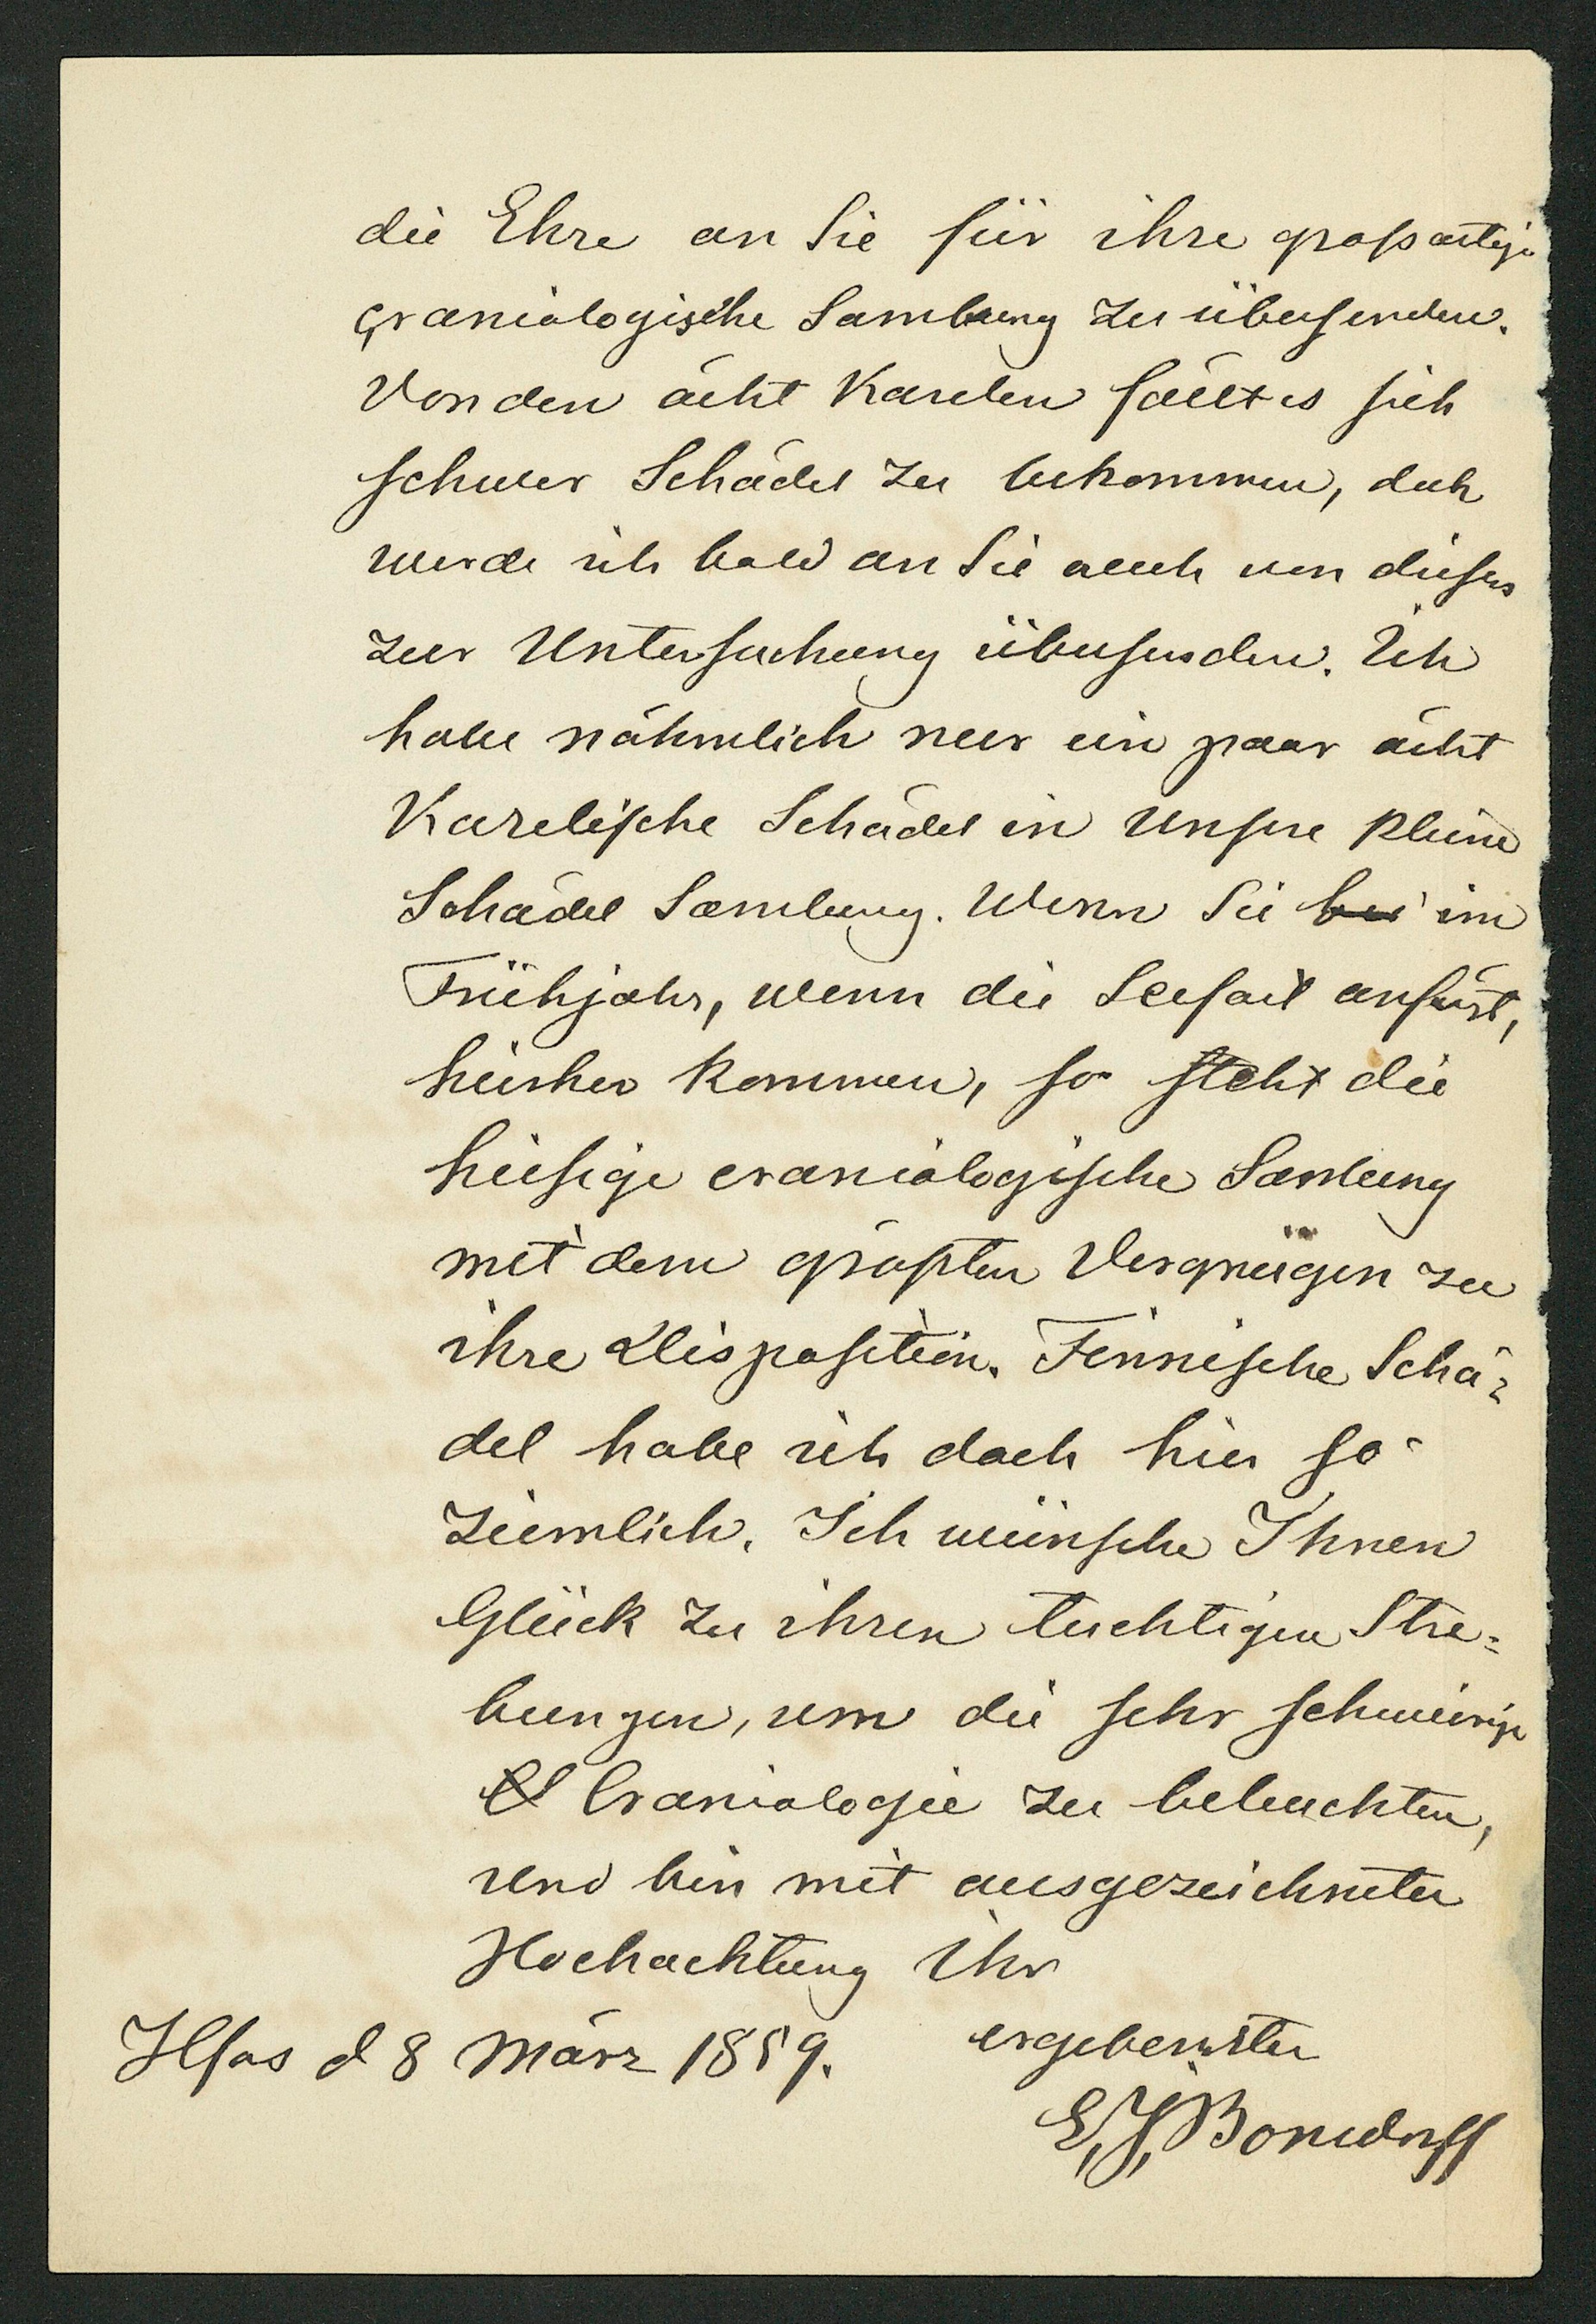 die Ehre an Sie für ihre großartige
craniologische Samlung zu übersenden.
Von den ächt Karelen fällt es sich
schwer Schädel zu bekommen, doch
werde ich bald an Sie auch von dieses
zur Untersuchung übersenden. Ich
habe nähmlich nur ein paar ächt
Karelische Schädel in unsere kleine
Schädel Samlung. Wenn Sie bei im
Frühjahr, wenn die Seefart anfärt,
hierher kommen, so steht die
hiesige craniologische Samlung
mit dem größten Vergnügen zu
ihre Disposition. Finnische Schä-
del habe ich doch hier so
ziemlich. Ich wünsche Ihnen
Glück zu ihren tuchtigen Stre-
bungen, um die sehr schwierige
Craniologie zu beleuchten,
und bin mit ausgezeichneter
Hochachtung Ihr
ergebenster
Hfors d 8 März 1859.
E. J. Bonsdorff